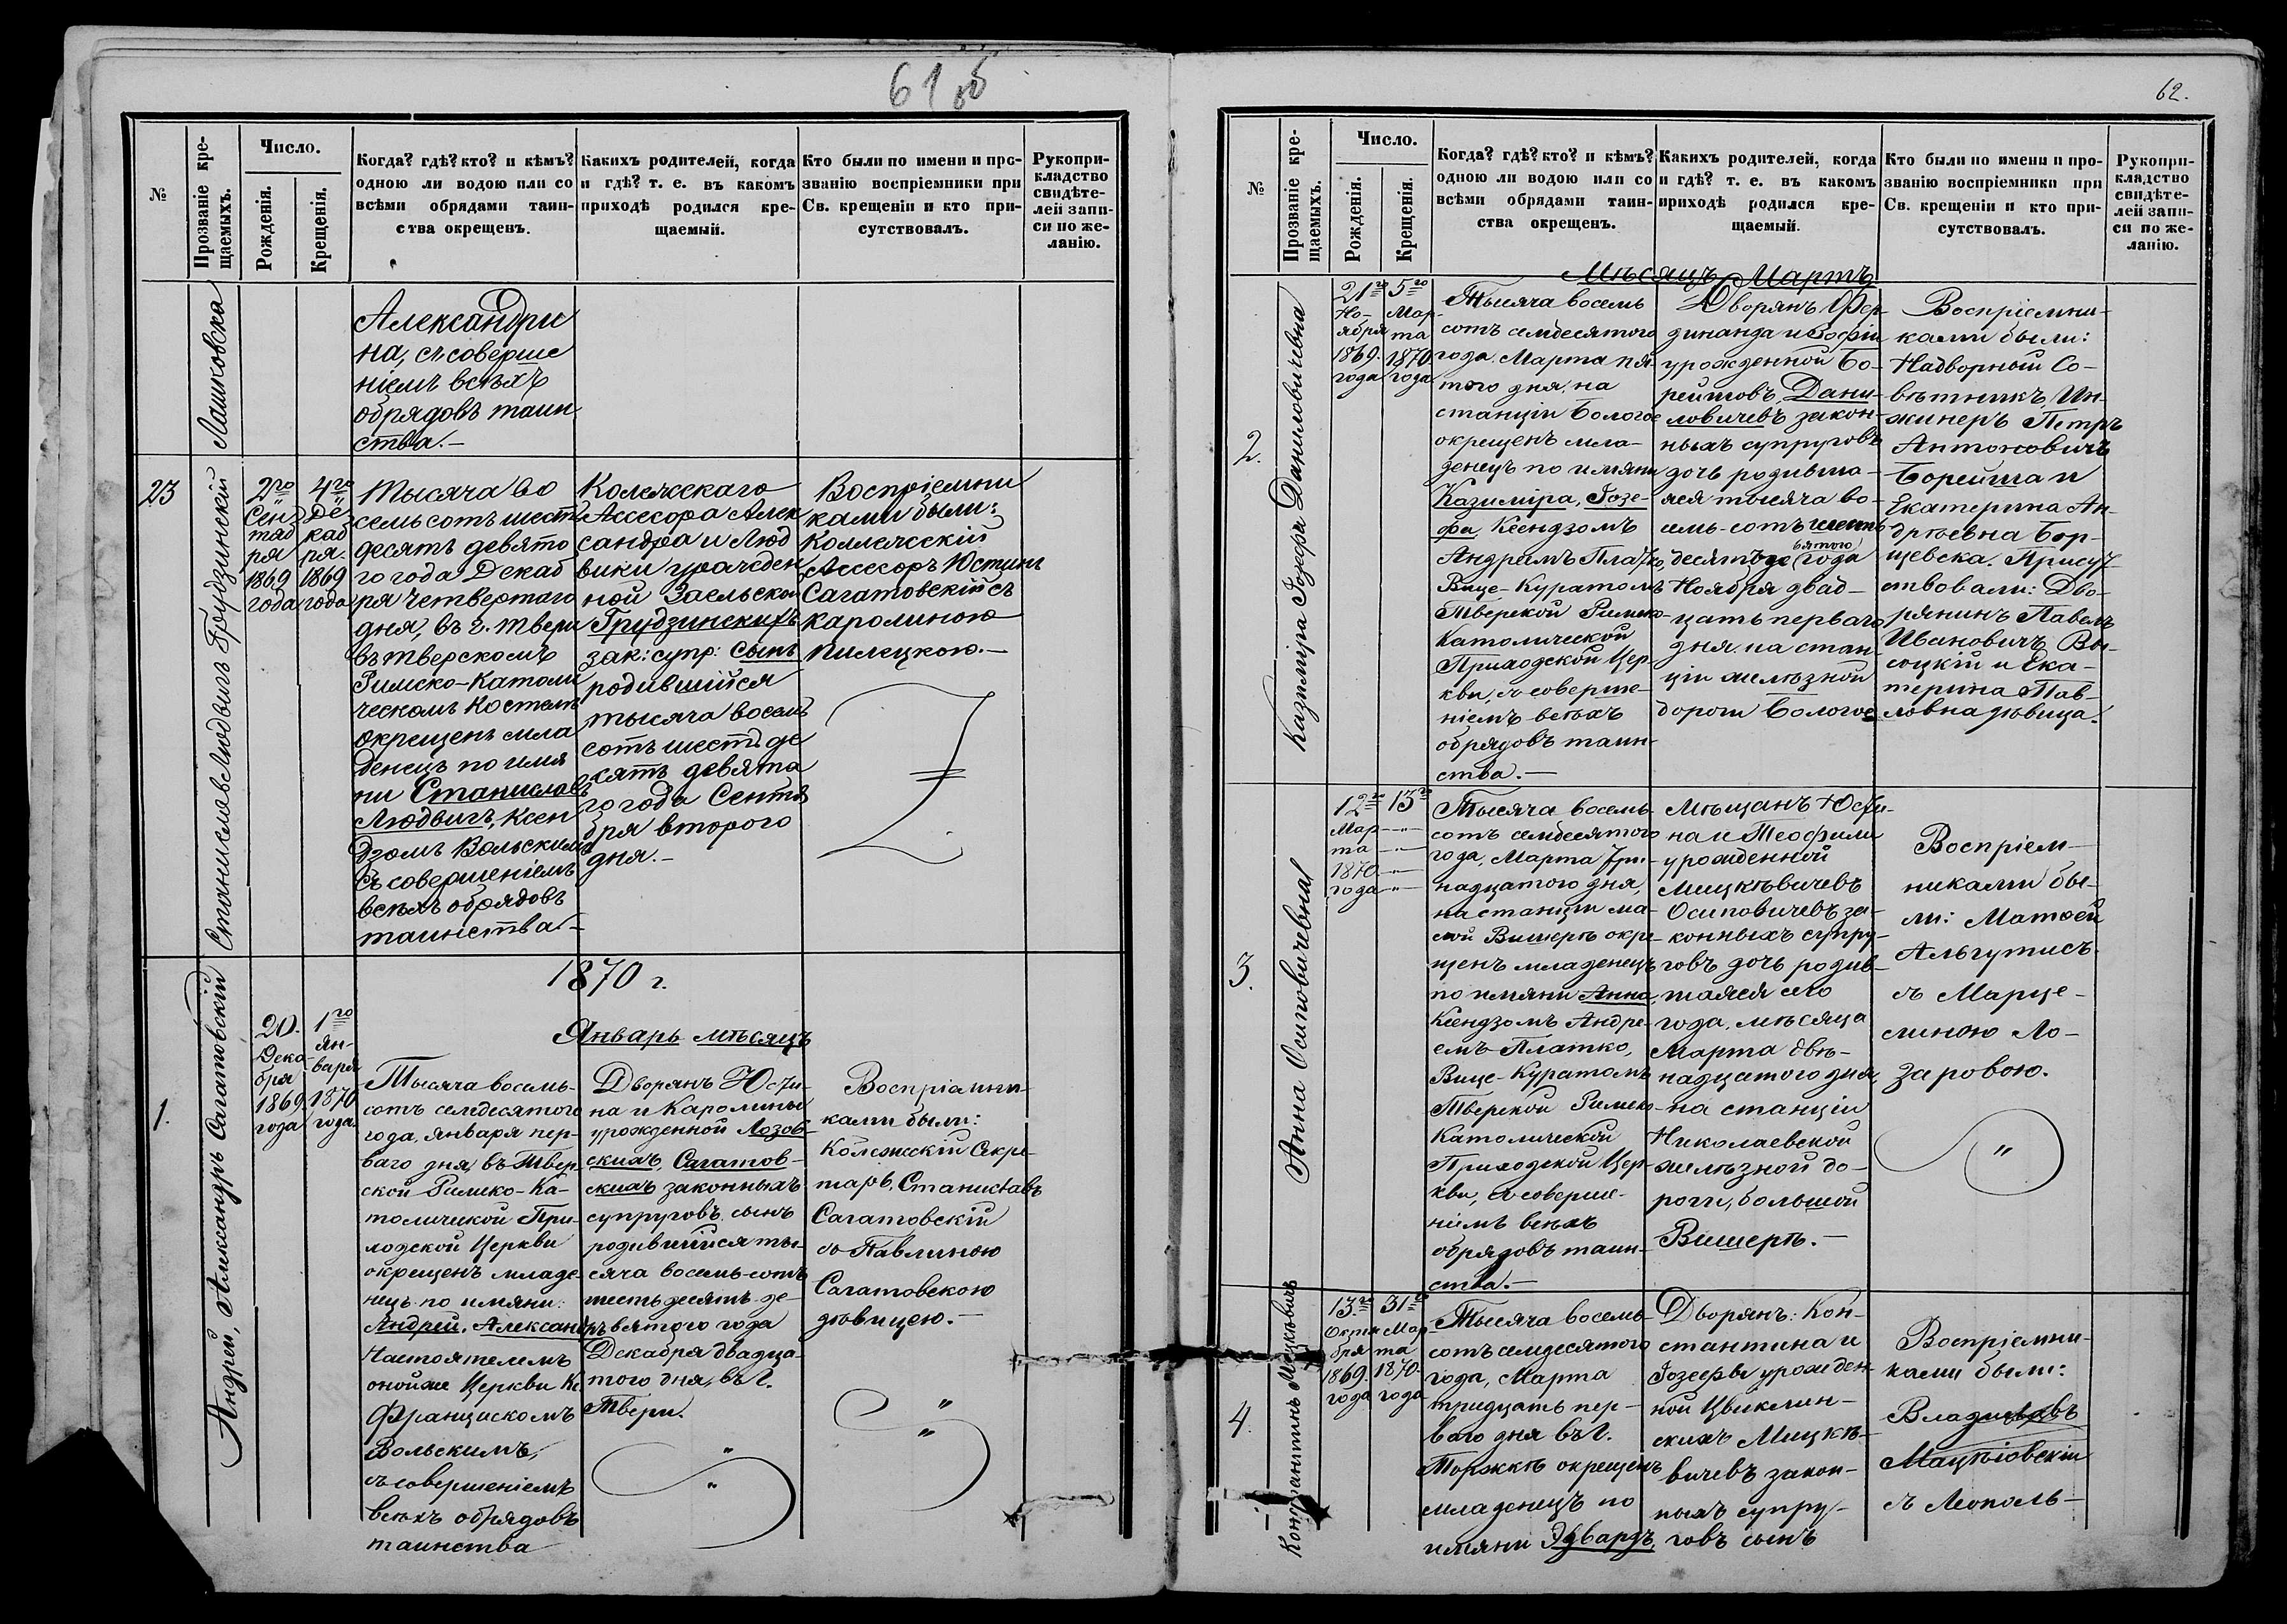 61 об
№
Прозваніе кре-
щаемыхъ.
Число.
Рожденія.
Крещенія.
Когда? гдѣ? кто? и кѣмъ?
одною ли водою или со
всѣми обрядами таин-
ства окрещенъ.
Какихъ родителей, когда
и гдѣ? т. е. въ какомъ
приходѣ родился кре-
щаемый.
Кто были по имени и про-
званію воспріемники при
Св. крещеніи и кто при-
сутствовалъ.
Рукопри-
кладство
свидѣте-
лей запи-
си по же-
ланію.
Лашковска
Александри
на, съ соверше
ніемъ всѣхъ
обрядовъ таин
ства.-
23
Станиславъ Людвигъ Грудзинскій
2го
Сен
тяб
ря
1869
года
4го
Де
каб
ря.
1869
года
Тысяча во
семьсотъ шест
десятъ девято
го года Декаб
ря четвертаго
дня, въ г. Твери
въ тверскомъ
Римско-Католи
ческомъ Костелѣ
окрещенъ мла
денецъ по имя
ни Станиславъ
Людвигъ, Ксен
дзомъ Вольскимъ
съ совершеніемъ
всѣхъ обрядовъ
таинства.-
Колежскаго
Ассесора Алек
сандра и Люд
вики урожден
ной Заельской
Грудзинскихъ
зак: супр: сынъ
родившійся
тысяча восемь
сотъ шестьде
сятъ девята
го года Сентя
бря второго
дня.-
Воспріемни
ками были:
Коллежскій
Ассесоръ Юстинъ
Сагатовскій съ
Каролиною
Пилецкою.-
1870 г.
Январь мѣсяцъ
1.
Андрей, Александръ Сагатовскій
20.
Дека-
бря
1869.
года
1го
Ян-
варя
1870
года.
Тысяча восемь-
сотъ семдесятого
года, января пер-
ваго дня, въ Твер-
ской Римско-Ка-
толичикой При-
ходской Церкви
окрещенъ младе-
нецъ по имяни:
Андрей, Александръ
Настоятелемъ
оной же Церкви Кс.
Францискомъ
Вольскимъ,
съ совершеніемъ
всѣхъ обрядовъ
таинства
Дворянъ Юсти-
на и Каролины
урожденной Лозов-
скихъ, Сагатов-
скихъ законныхъ
супруговъ сынъ
родившійся ты-
сяча восемь-сотъ
шестьдесятъ де-
вятого года
Декабря двадца-
того дня, въ г.
Твери.
Воспріэмни-
ками были:
Колежскій Секре-
таръ, Станиславъ
Сагатовскій
съ Павлиною
Сагатовскою
дѣвицею.-
62.
№
Прозваніе кре-
щаемыхъ.
Число.
Рожденія.
Крещенія.
Когда? гдѣ? кто? и кѣмъ?
одною ли водою или со
всѣми обрядами таин-
ства окрещенъ.
Какихъ родителей, когда
и гдѣ? т. е. въ какомъ
приходѣ родился кре-
щаемый.
Кто были по имени и про-
званію воспріемники при
Св. крещеніи и кто при-
сутствовалъ.
Рукопри-
кладство
свидѣте-
лей запи-
си по же-
ланію.
Мѣсяцъ Мартъ
2.
Казиміра Іозефа Даниловичевна
21го
Но-
ября
1869.
года
5го
Мар-
та
1870
года
Тысяча восемь
сотъ семдесятого
года Марта пя-
того дня, на
станціи Бологое
окрещенъ мла-
денецъ по имяни
Казиміра, Іозе-
фа, Ксендзомъ
Андреемъ Платко,
Вице-Куратомъ
Тверской Римско-
Католической
Приходской Цер-
кви, съ соверше-
ніемъ всѣхъ
обрядовъ таин-
ства.-
Дворянъ Фер-
динанда и Зофіи
урожденной Бо-
рейшовъ, Дани-
ловичевъ закон-
ныхъ супруговъ
дочь родивша-
яся тысяча во-
семь-сотъ шесть
десятъ девятого года
Ноября двад-
цать перваго
дня, на стан-
ціи желѣзной
дороги Бологое
Воспріемни-
ками были:
Надворный Со-
вѣтникъ, Ин-
жинеръ Петръ
Антоновичъ
Борейша и
Екатерина Ан-
дрѣевна Бор-
щевска. Присут-
ствовали: Дво-
рянинъ Павелъ
Ивановичъ Вы-
соцкій и Ека-
терина Пав-
ловна дѣвица.
3.
Анна Осиповичевна
12го
Мар-
та
1870.
года
13го
Тысяча восемь-
сотъ семдесятого
года, Марта три-
надцатого дня,
на станціи ма-
лой Вишерѣ окре-
щенъ младенецъ
по имяни Анна,
Ксендзомъ Андре-
емъ Платко,
Вице-Куратомъ
Тверской Римско-
Католической
Приходской Цер-
кви, съ соверше-
ніемъ всѣхъ
обрядовъ таин-
ства.-
Мѣщанъ Юсти-
на и Теофили
урожденной
Мицкѣвичевъ
Осиповичевъ за-
конныхъ супру-
говъ дочь родив-
шаяся сего
года, мѣсяца
Марта двѣ-
надцатого дня,
на станціи
Николаевской
желѣзной до-
роги, большой
Вишерѣ.-
Воспріем-
никами бы-
ли: Матвей
Альгутисъ
съ Марце-
линою Ло-
заровою.
4.
Константинъ Мицкѣвичъ
13.го
Октя-
бря
1869.
года
31го
Мар-
та
1870.
года
Тысяча восемь-
сотъ семдесятого
года, Марта
тридцать пер-
ваго дня въ г.
Торжкѣ окрещенъ
младенецъ по
имяни Эдвардъ,
Дворянъ: Кон-
стантина и
Іозефы урожден-
ной Цвиклин-
скихъ Мицкѣ-
вичевъ закон-
ныхъ супру-
говъ сынъ
Воспріемни-
ками были:
Владиславъ
Мацѣіовскій
съ Леополь-